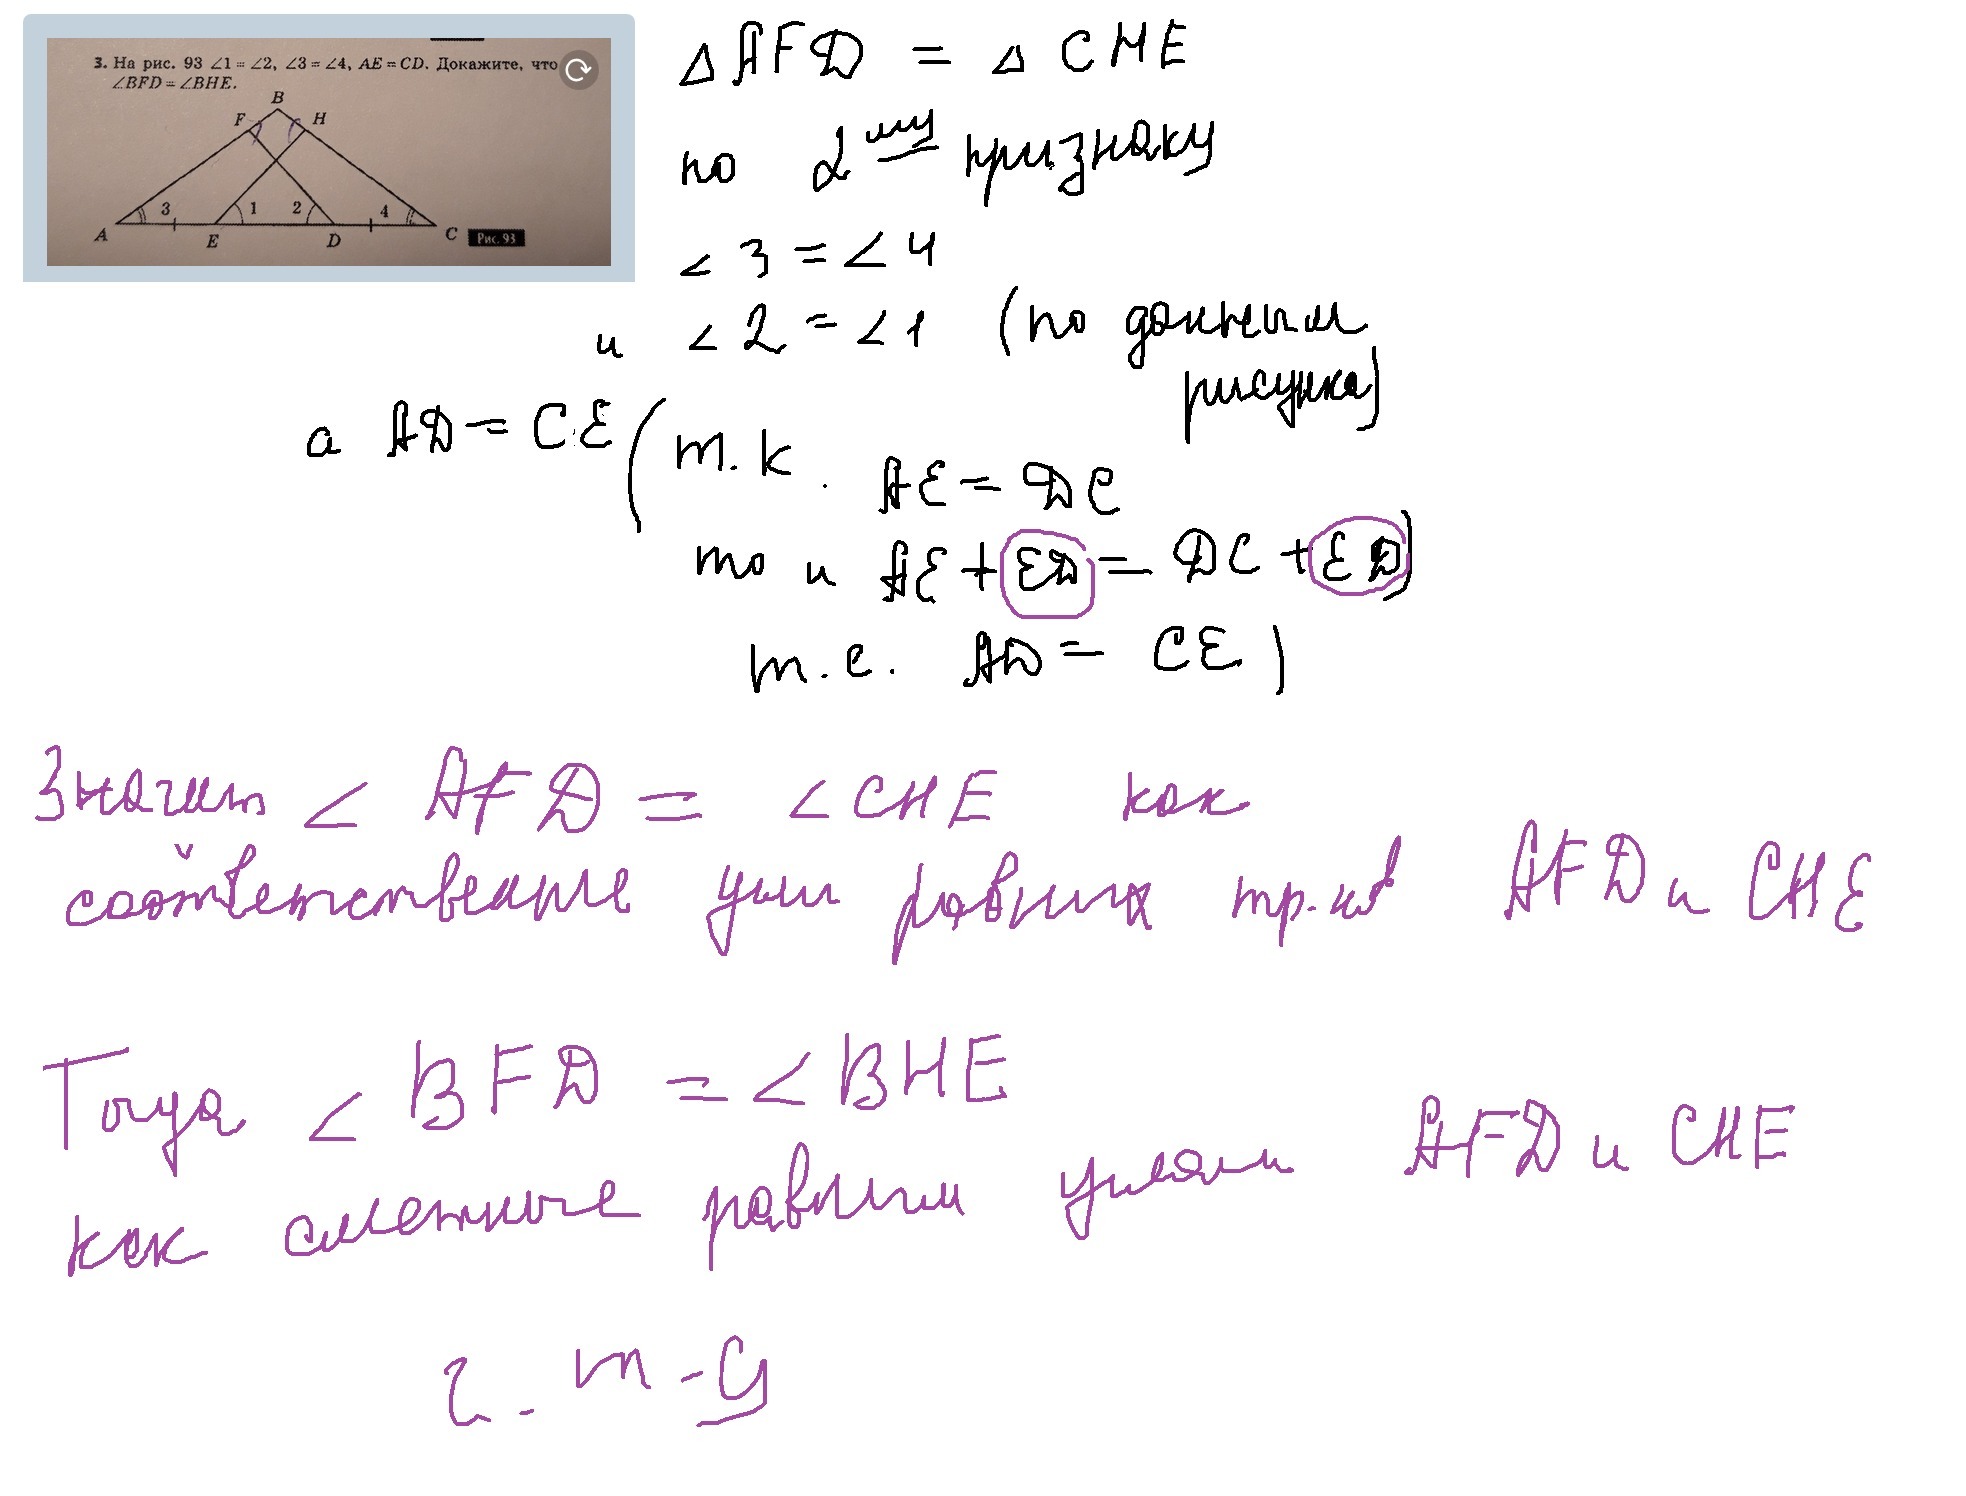 3. На рис. 93 ∠1 = ∠2, ∠3 = ∠4, AE = CD. Докажите, что
∠BFD = ∠BHE.
B
F H
3 1 2 4
A E D C Рис. 93
△ AFD = △ CHE
по 2му признаку
∠3 = ∠4
и ∠2 = ∠1 (по данным
рисунка)
а AD = CE (т.к. AE = DC
то и AE + ED = DC + ED)
т.е. AD = CE)
Значит ∠ AFD = ∠CHE как
соответственные углы равных тр.ков AFD и CHE
Тогда ∠ BFD = ∠ BHE
как смежные равным углам AFD и CHE
ч.т.д